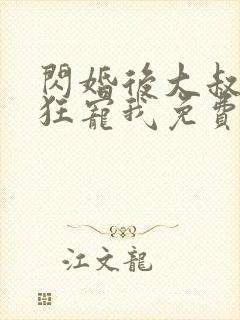 閃婚後大叔
狂寵我免費
江文龍